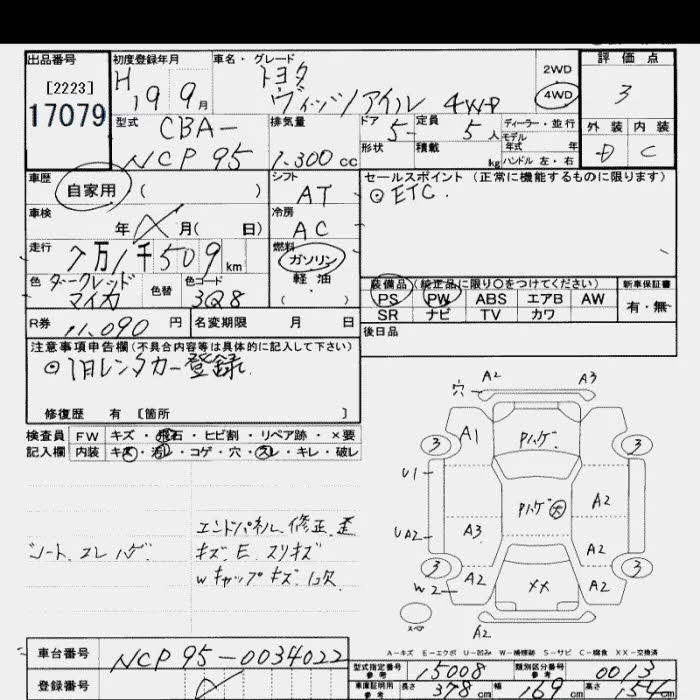 出品番号
[2223]
17079
初度登録年月
H 19 9月
車名・グレード
トヨタ
ヴィッツ アイル 4WD
2WD
4WD
評価点
3
外装 内装
D C
型式
CBA-
NCP95
排気量
1.300cc
ドア
5
定員
5人
形状
積載
kg
ディーラー・並行
モデル
年式 年
ハンドル 左・右
車歴
自家用 ( )
シフト
AT
車検
年 月( 日)
冷房
AC
走行
7万1千509km
燃料
ガソリン
軽油
( )
色
ダークレッド
マイカ
色替
色コード
3Q8
R券 11.090円
名変期限 月 日
セールスポイント(正常に機能するものに限ります)
⊙ETC.
装備品(純正品に限り○をつけてください)
PS PW ABS エアB AW
SR ナビ TV カワ
新車保証書
有・無
後日品
注意事項申告欄(不具合内容等は具体的に記入して下さい)
⊙旧レンタカー登録.
修復歴 有 〔箇所 〕
検査員
記入欄
FW キズ・飛石・ヒビ割・リペア跡・×要
内装 キズ・汚レ・コゲ・穴・スレ・キレ・破レ
シート スレ ハゲ
エンドパネル 修正 歪
キズ.E スリキズ
Wキャップ キズ.1欠
穴 A2 A3
A1 Pハゲ
3 3
U1
Pハゲ 大 A2
UA2 A3
A2
3 3
W2 A2 XX A2
スペ
A2
A-キズ E-エクボ U-凹み W-補修跡 S-サビ C-腐食 XX-交換済
車台番号
NCP95-0034022
登録番号
型式指定番号
参考
15008
類別区分番号
参考
0013
車庫証明用
参考
長さ
378cm
幅
169cm
高さ
154cm